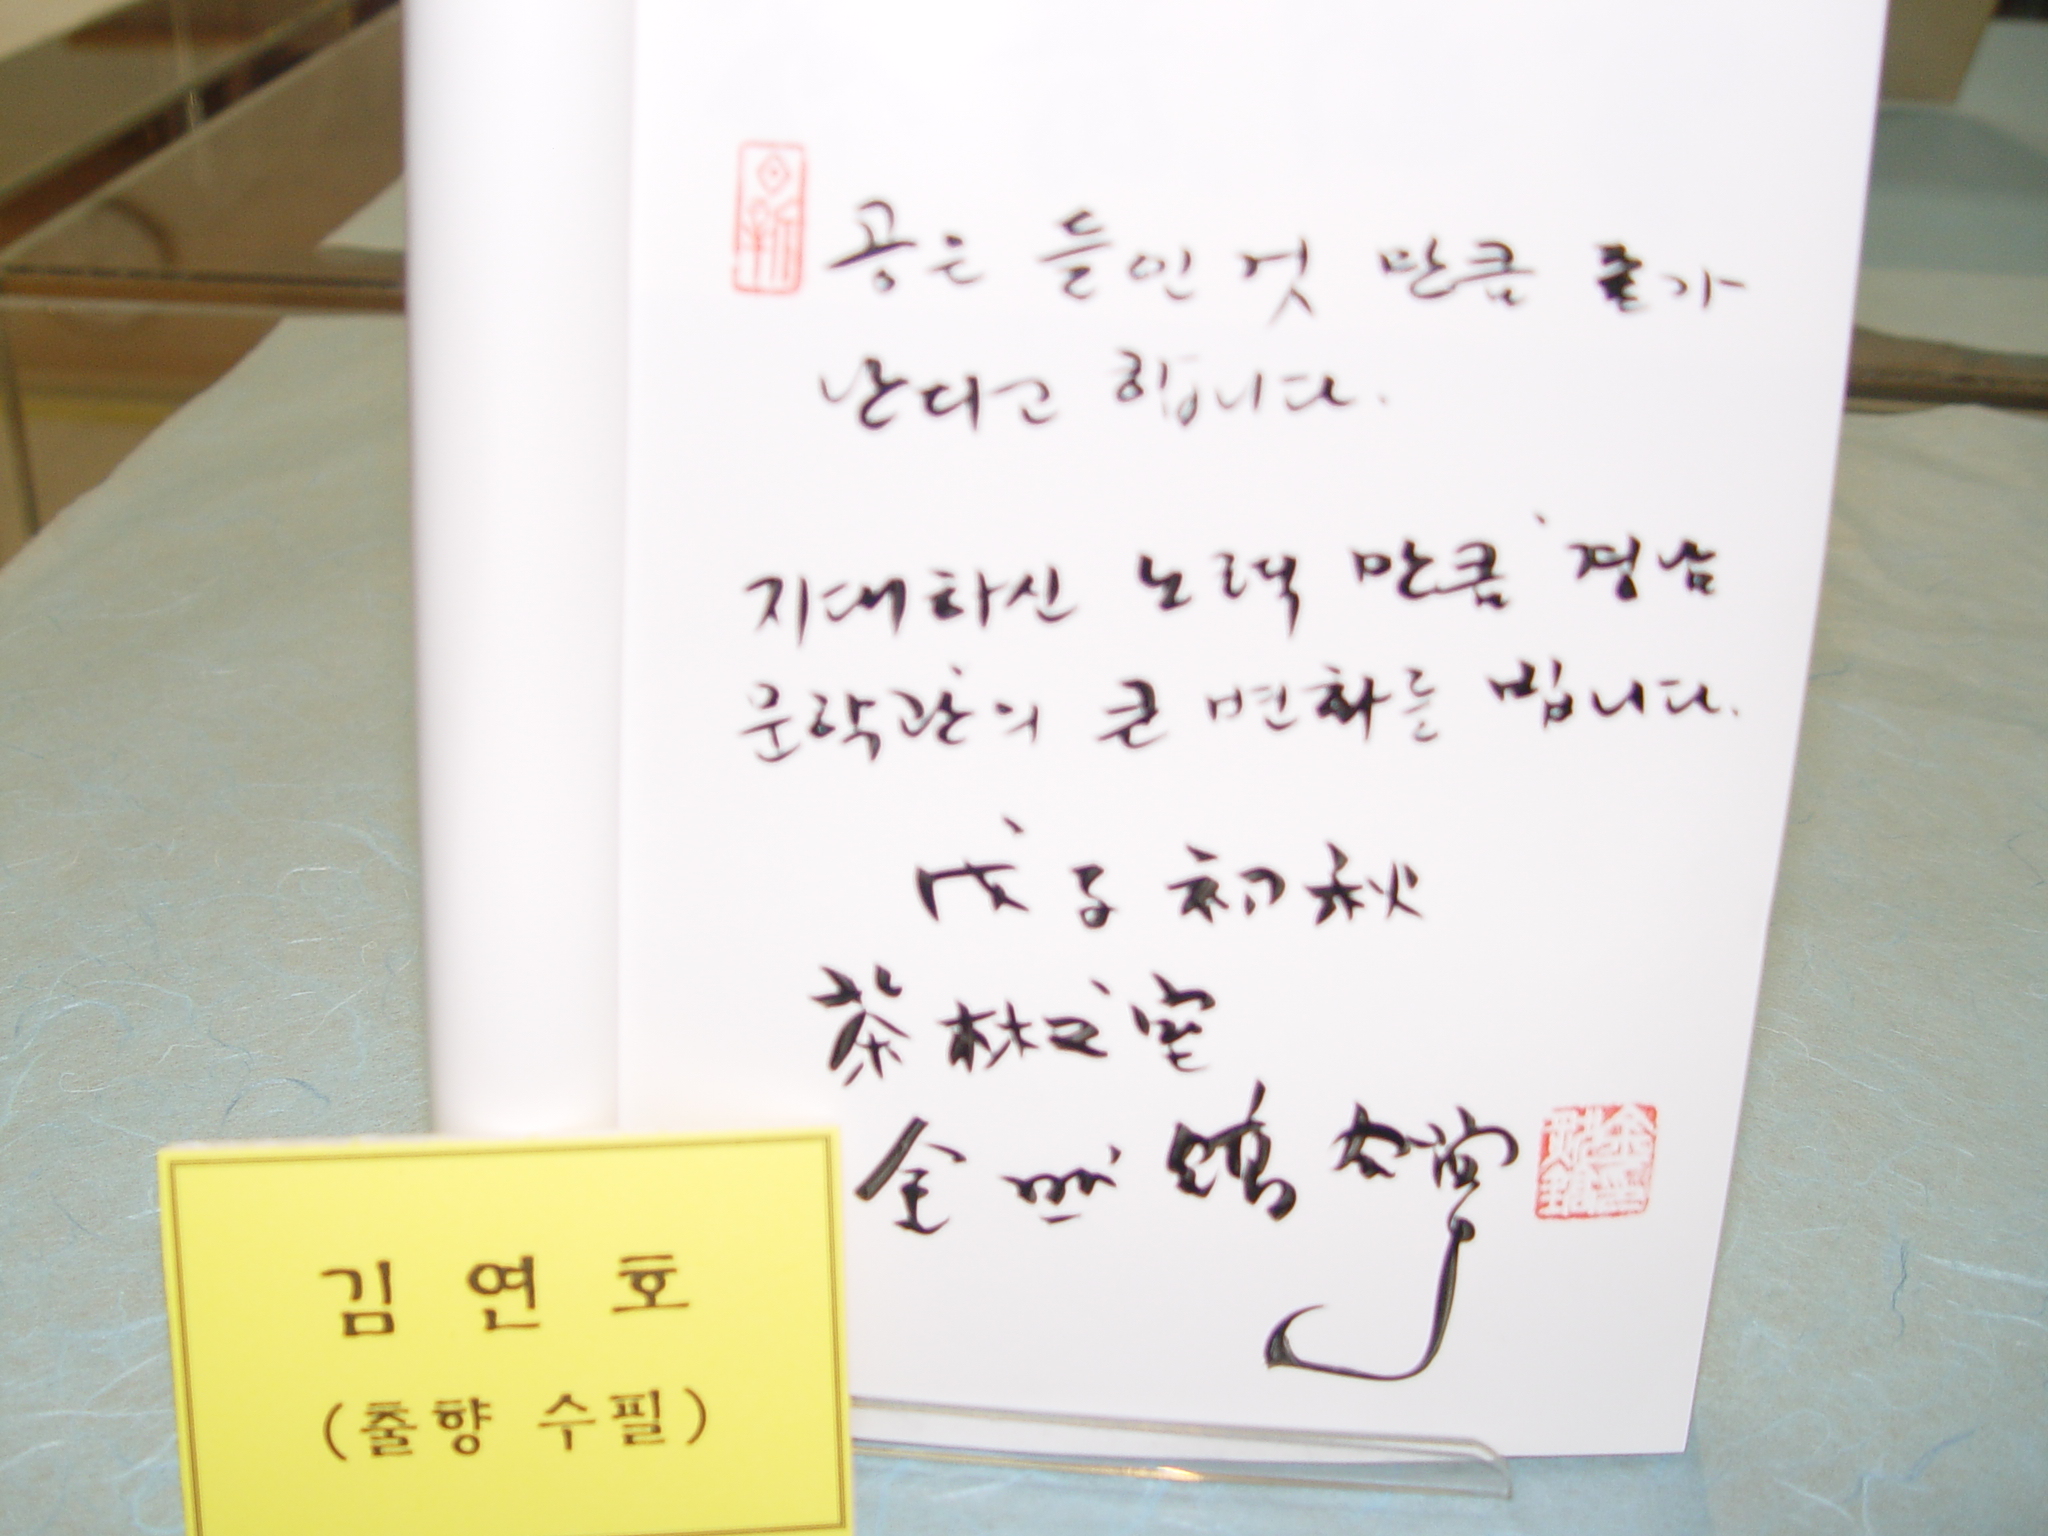 공은 들인 것 만큼 표가
난다고 합니다.
지대하신 노력 만큼 경남
문학관의 큰 변화를 빕니다.
戊子 初秋
茶林之室
金
김 연 호
(출향 수필)